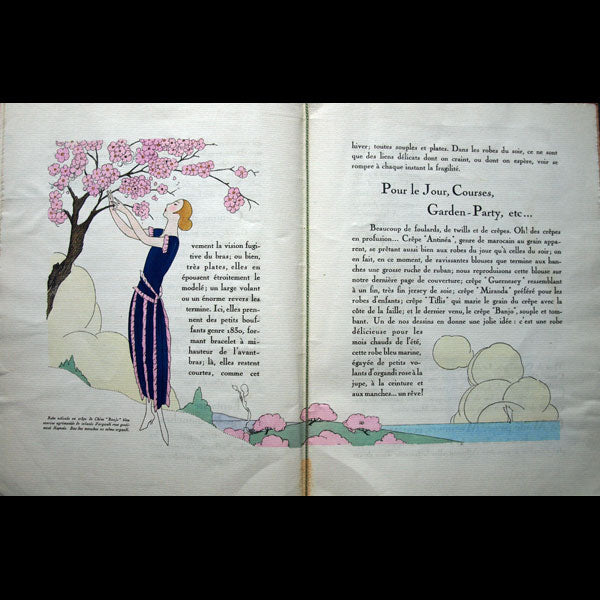 vement la vision fugi-
tive du bras; ou bien,
très plates, elles en
épousent étroitement le
modelé; un large volant
ou un énorme revers les
termine. Ici, elles pren-
nent des petits bouf-
fants genre 1850, for-
mant bracelet à mi-
hauteur de l'avant-
bras; là, elles restent
courtes, comme cet
Robe estivale en crêpe de Chine "Banjo" bleu
marine agrémentée de volants d'organdi rose
Bas des manches en même organdi.
hiver; toutes souples et plates. Dans les robes du soir, ce ne sont
que des liens délicats dont on craint, ou dont on espère, voir se
rompre à chaque instant la fragilité.
Pour le Jour, Courses,
Garden-Party, etc...
Beaucoup de foulards, de twills et de crêpes. Oh! des crêpes
en profusion... Crêpe "Antinéa", genre de marocain au grain appa-
rent, se prêtant aussi bien aux robes du jour qu'à celles du soir; on
en fait, en ce moment, de ravissantes blouses que termine aux han-
ches une grosse ruche de ruban; nous reproduisons cette blouse sur
notre dernière page de couverture; crêpe "Guernesey" ressemblant
à un fin, très fin jersey de soie; crêpe "Miranda" préféré pour les
robes d'enfants; crêpe "Tiflis" qui marie le grain du crêpe avec la
côte de la faille; et le dernier venu, le crêpe "Banjo", souple et tom-
bant. Un de nos dessins en donne une jolie idée: c'est une robe
délicieuse pour les
mois chauds de l'été,
cette robe bleu marine,
égayée de petits vo-
lants d'organdi rose à la
jupe, à la ceinture et
aux manches... un rêve!